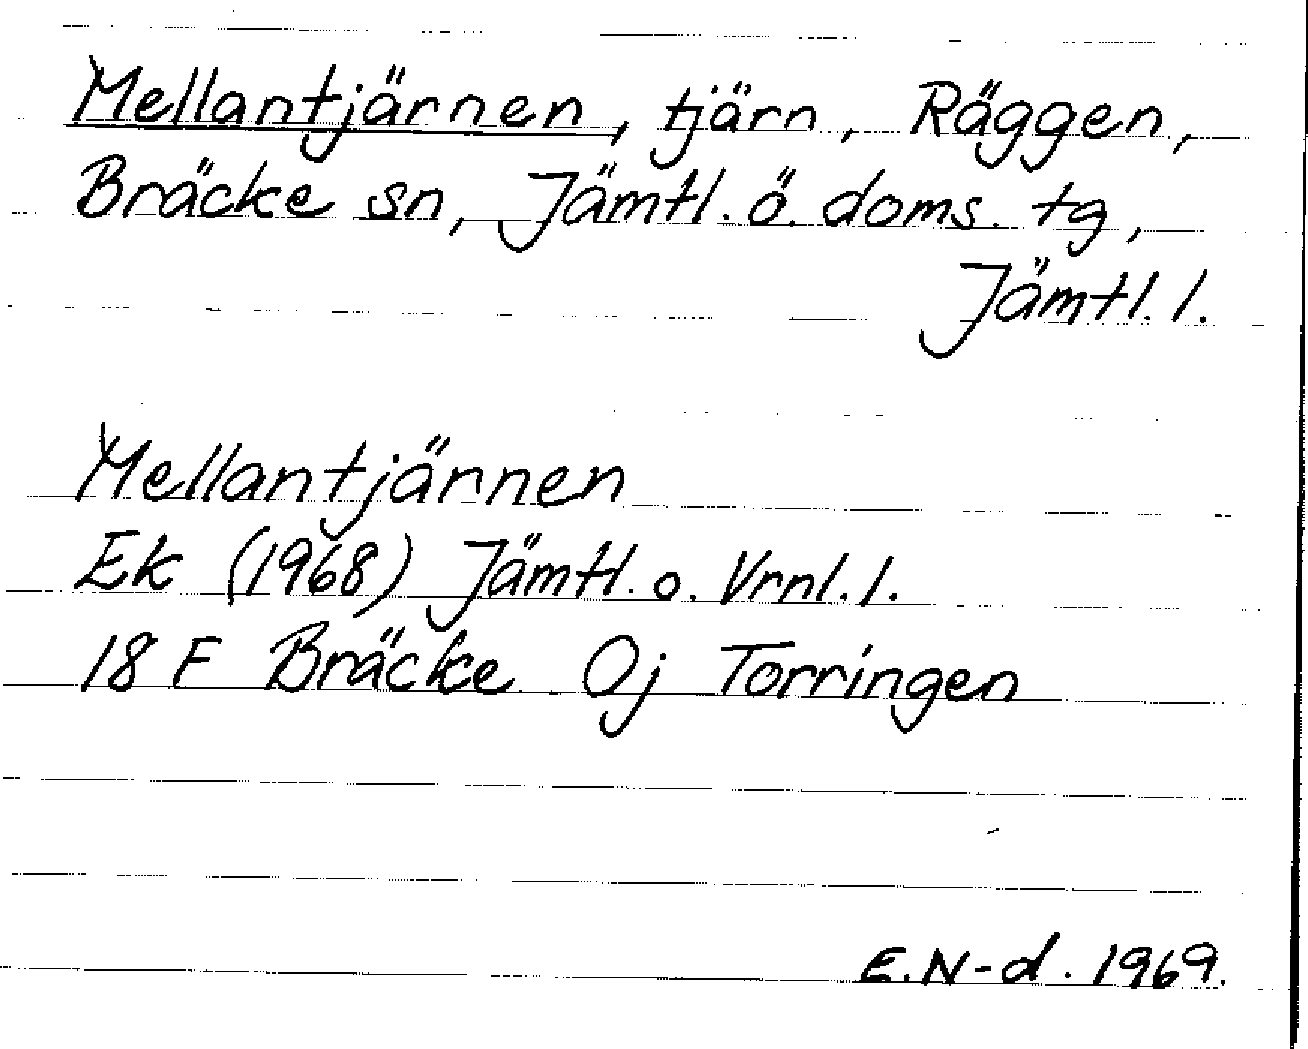 Mellantjärnen, tjärn, Räggen,
Bräcke sn, Jämtl. ö. doms. tg,
Jämtl. l.
Mellantjännen
Ek (1968) Jämtl. o. Vrnl. l.
18 F Bräcke Oj Torringen
E. N-d. 1969.